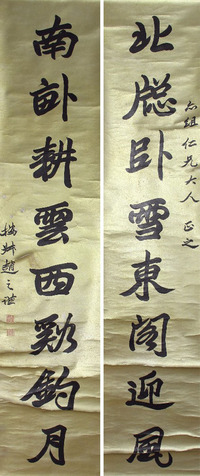 北牕卧雪東閣迎風
仁兄大人 正之
南畝耕雲西谿釣月
撝叔趙之謙